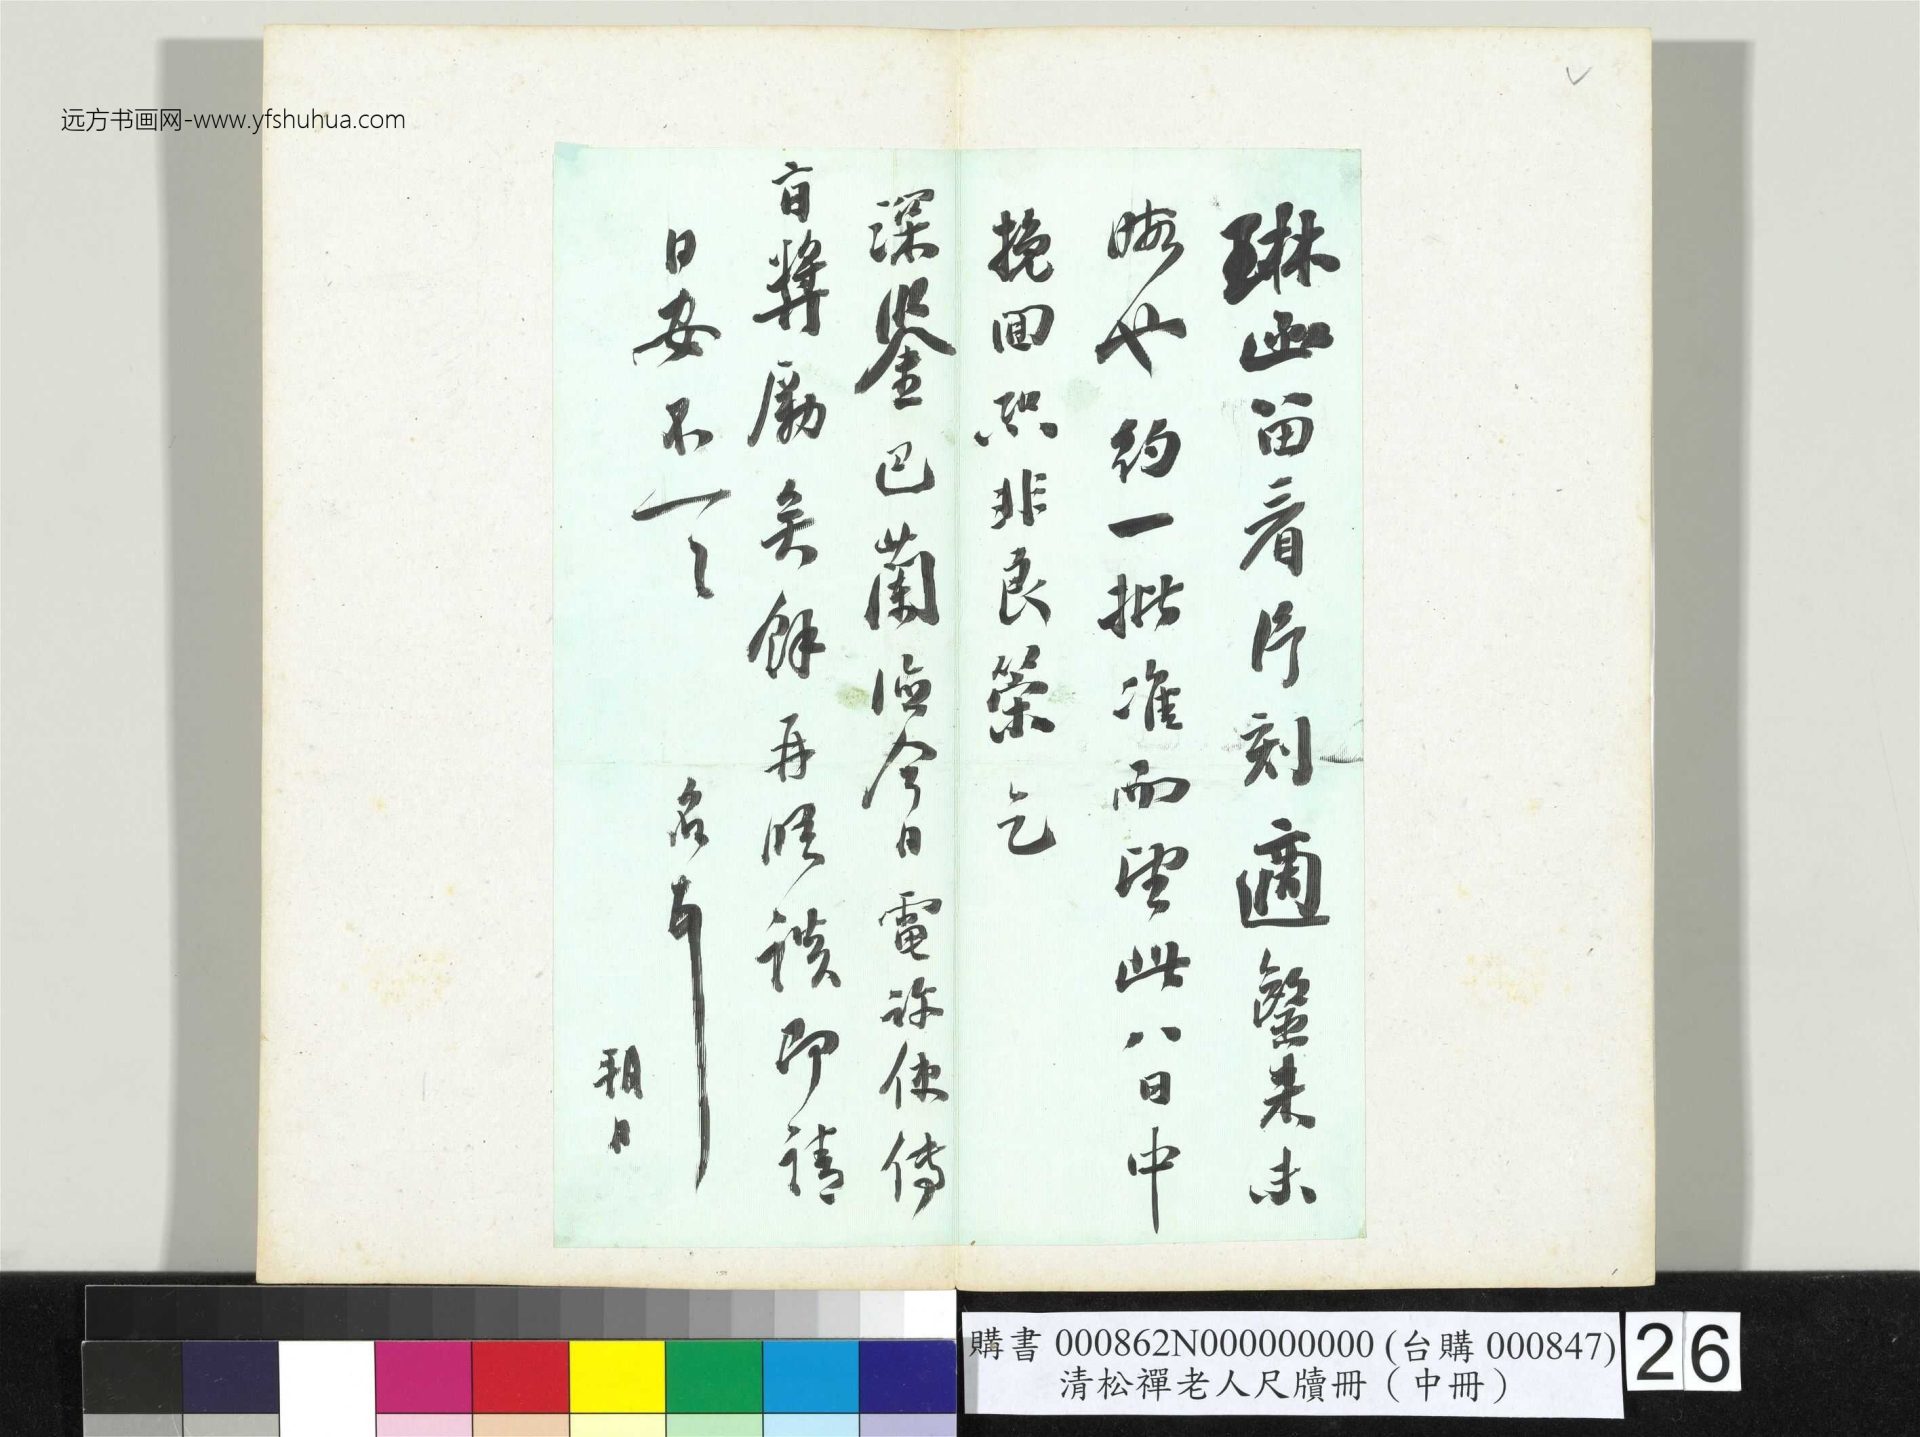 远方书画网-www.yfshuhua.com
琳函留看片刻適鑒未未
晦廿約一批准而望此八日中
挽回恐非良策乞
深鑒巴蘭德今日電許使傳
旨獎勵矣餘再晤談即請
日安不一一
名
朔日
購書 000862N000000000 (台購 000847)
清松禪老人尺牘冊（中冊）
26